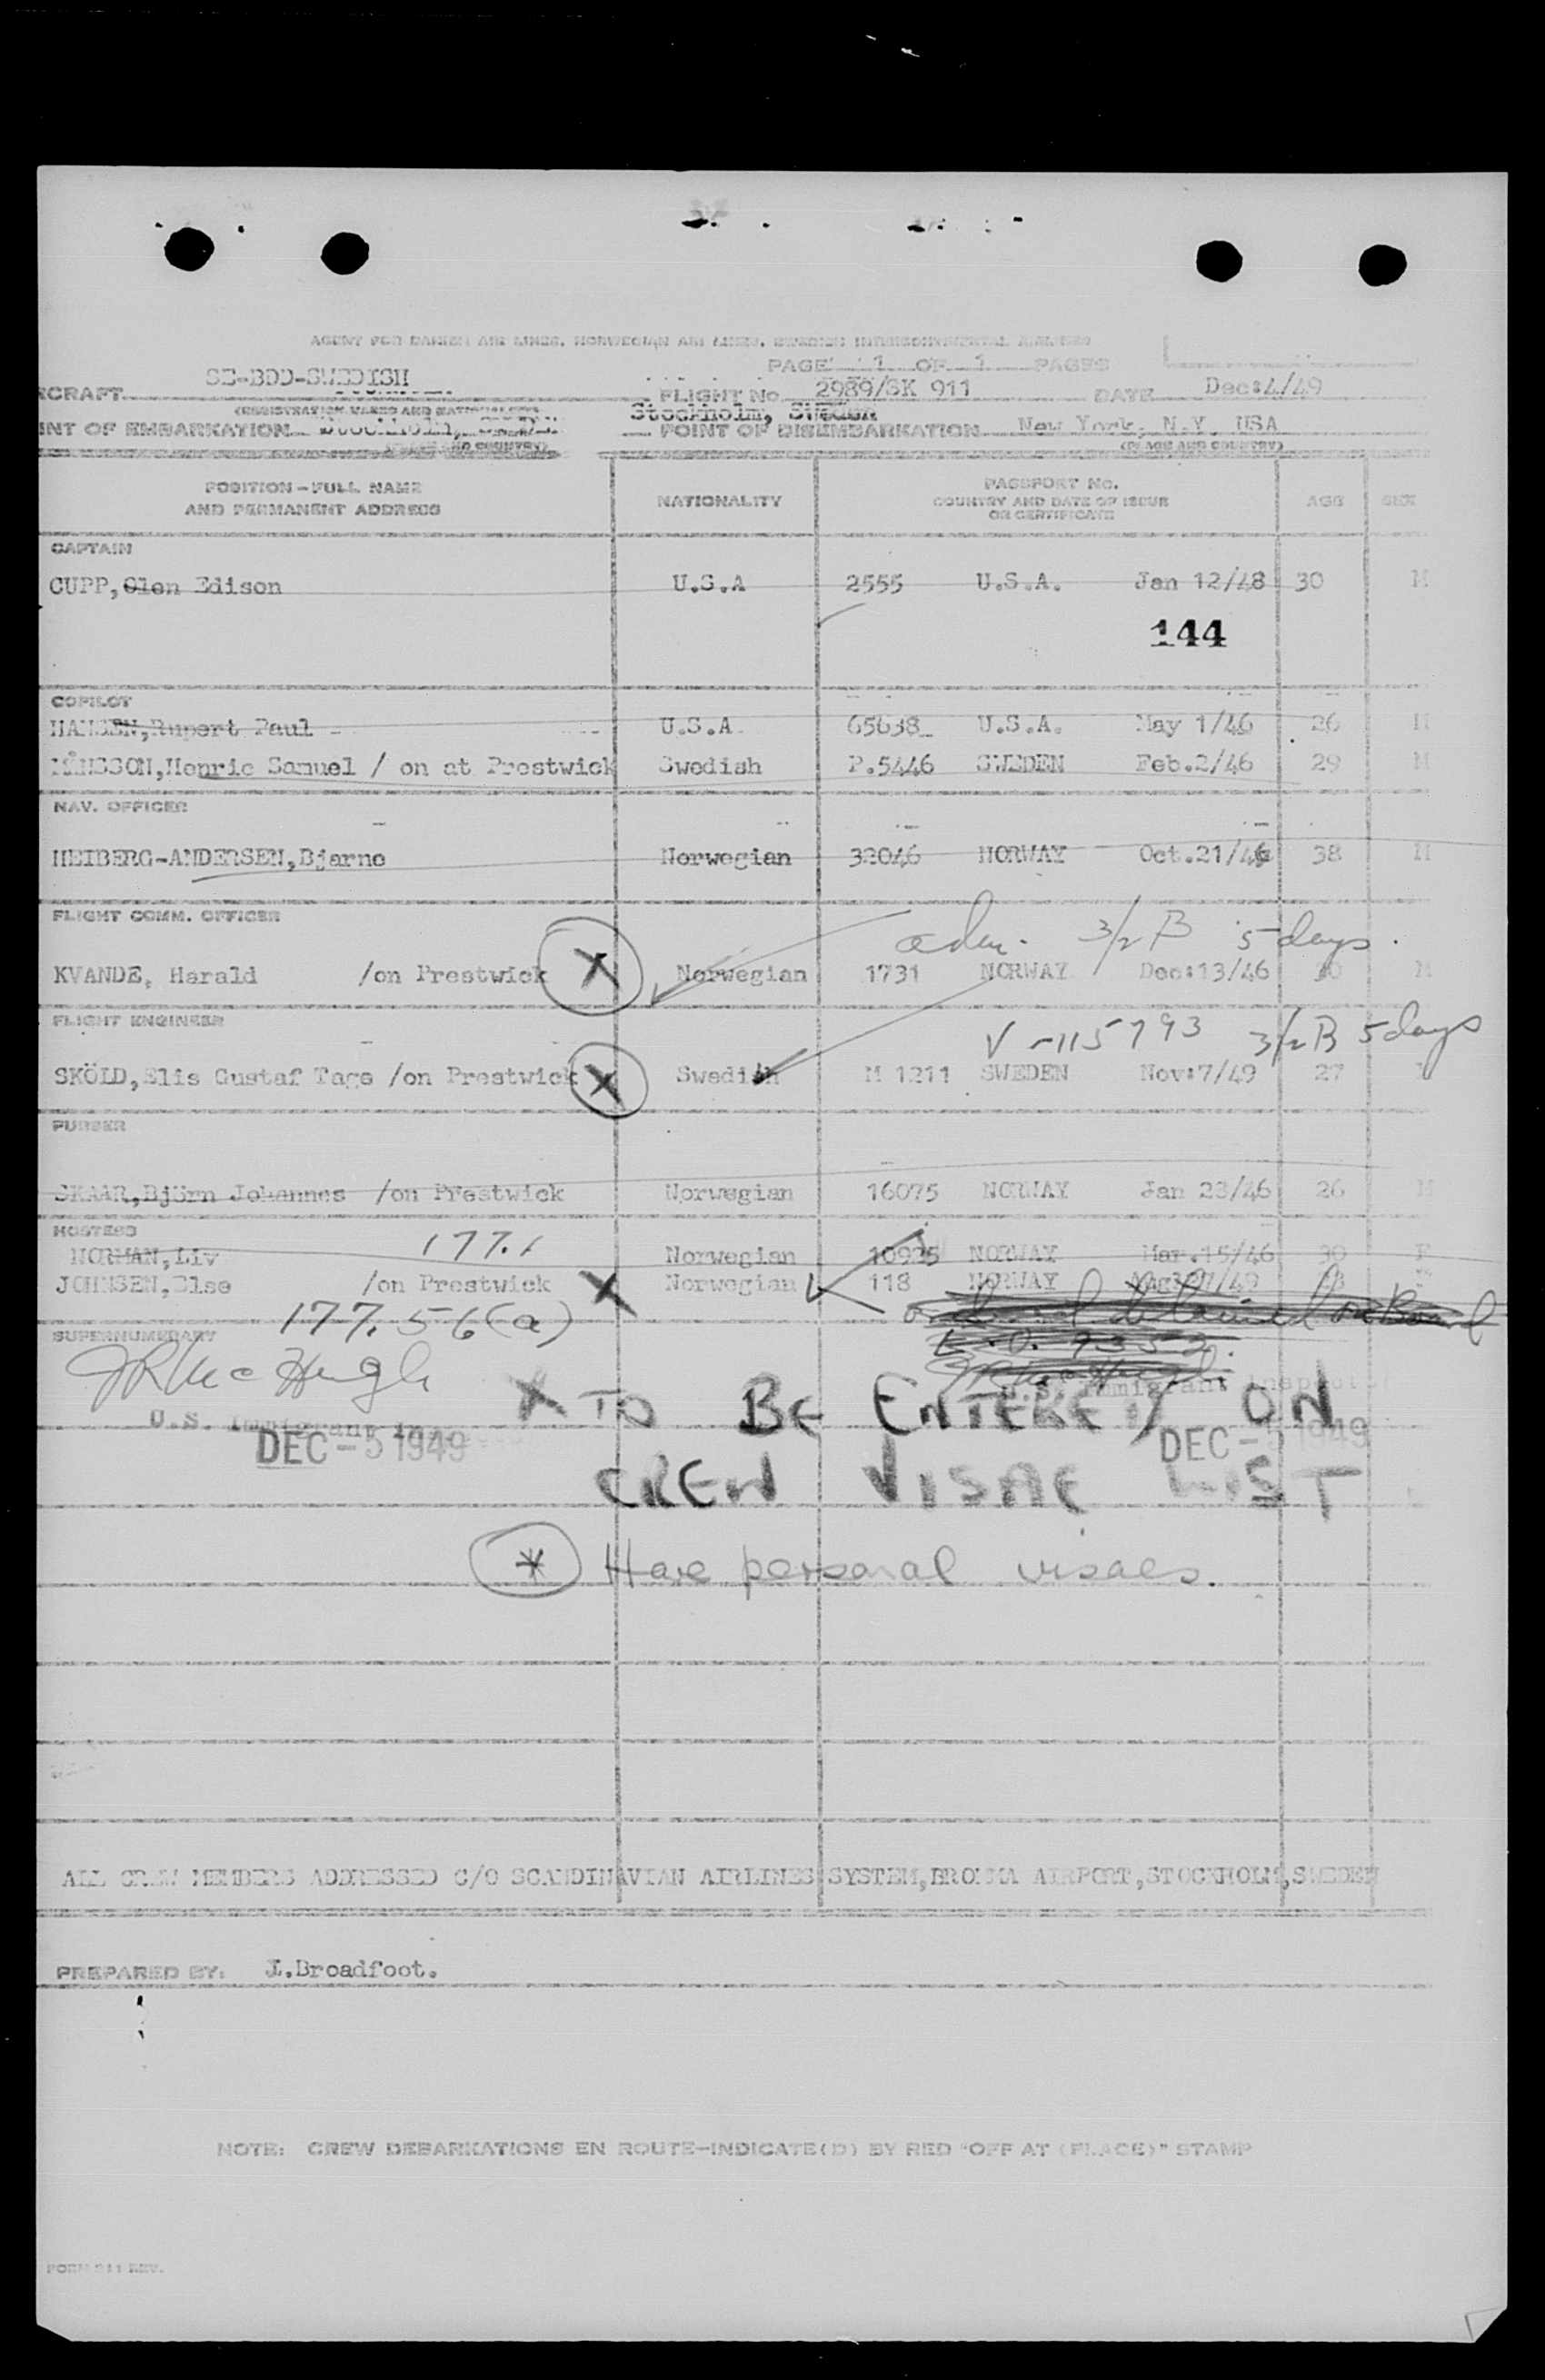 AGENT FOR DANISH AIR LINES, NORWEGIAN AIR LINES, SWEDISH INTERCONTINENTAL AIRLINES
PAGE 1 OF 1 PAGES
RCRAFT SE-BDD-SWEDISH FLIGHT No. 2989/SK 911 DATE Dec:4/49
(REGISTRATION MARKS AND NATIONALITY)
Stockholm, Sweden
INT OF EMBARKATION Stockholm, POINT OF DISEMBARKATION New York, N.Y. USA
(PLACE AND COUNTRY) (PLACE AND COUNTRY)
POSITION – FULL NAME AND PERMANENT ADDRESS NATIONALITY PASSPORT No. COUNTRY AND DATE OF ISSUE OR CERTIFICATE AGE SEX
CAPTAIN
CUPP, Glen Edison U.S.A 2555 U.S.A. Jan 12/48 30 M
144
COPILOT
HANSEN, Rupert Paul U.S.A. 65638 U.S.A. May 1/46 26 M
MÅNSSON, Henric Samuel / on at Prestwick Swedish P.5446 SWEDEN Feb.2/46 29 M
NAV. OFFICER
HEIBERG-ANDERSEN, Bjarne Norwegian 32046 NORWAY Oct.21/46 38 M
FLIGHT COMM. OFFICER
3/2 B 5 days.
KVANDE, Harald /on Prestwick X Norwegian 1731 NORWAY Dec:13/46 M
FLIGHT ENGINEER
V-115793 3/2 B 5 days
SKÖLD, Elis Gustaf Tage /on Prestwick X Swedish M 1211 SWEDEN Nov:7/49 27
PURSER
SKAAR, Björn Johannes /on Prestwick Norwegian 16075 NORWAY Jan 23/46 26 M
HOSTESS 177.1
NORMAN, Liv Norwegian 10925 NORWAY Mar.15/46 30 F
JOHNSEN, Else /on Prestwick X Norwegian 118 NORWAY
177.56(a) detained on Board
SUPERNUMERARY
E.O. 9352.
JR McHugh JR McHugh
U.S. Immigrant U.S. Immigrant Inspector
X TO BE ENTERED ON
DEC - 5 1949 DEC - 5 1949
CREW VISAE LIST
* Have personal visaes.
ALL CREW MEMBERS ADDRESSED C/O SCANDINAVIAN AIRLINES SYSTEM, BROMMA AIRPORT, STOCKHOLM, SWEDEN
PREPARED BY: J.Broadfoot.
NOTE: CREW DEBARKATIONS EN ROUTE–INDICATE(D) BY RED "OFF AT (PLACE)" STAMP
FORM 911 REV.